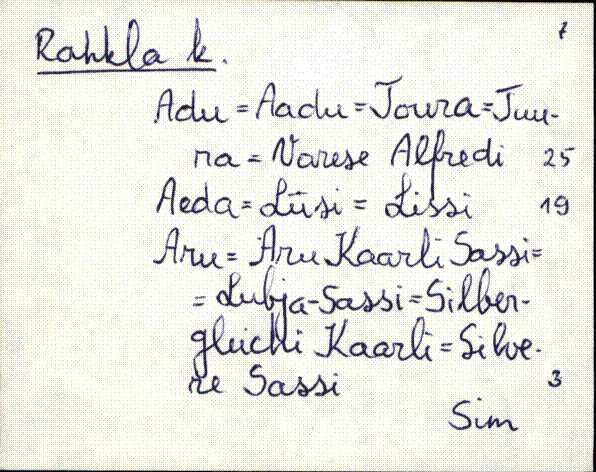 7
Rahkla k.
Adu = Aadu = Joura = Juu-
ra = Varese Alfredi 25
Aeda = Lüsi = Lissi 19
Aru = Aru Kaarli Sassi =
= Lubja-Sassi = Silber-
gleichi Kaarli = Silve-
re Sassi 3
Sim